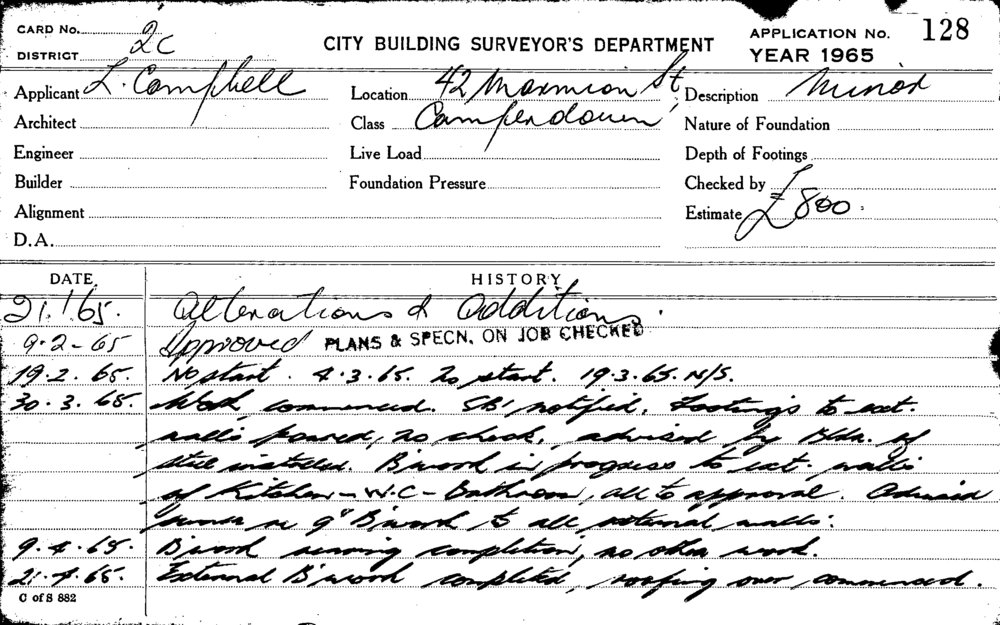 CARD No. 2C
DISTRICT
CITY BUILDING SURVEYOR'S DEPARTMENT
APPLICATION No. 128
YEAR 1965
Applicant L. Campbell
Location 42 Marmion St
Description Minor
Architect
Class Camperdown
Nature of Foundation
Engineer
Live Load
Depth of Footings
Builder
Foundation Pressure
Checked by
Alignment
Estimate £800.
D.A.
DATE HISTORY
21.1.65. Alterations & Additions.
9-2-65 Approved PLANS & SPECN. ON JOB CHECKED
19.2.65. No start. 4.3.65. No start. 19.3.65. N/S.
30.3.65. Work commenced. notified. Footings to ext.
walls poured, no check, advised by Bldr. of
steel installed. B'work in progress to ext. walls
of Kitchen - W.C - Bathroom, all to approval. Advised
owner re 9" B'work to all external walls.
9.4.65. B'work nearing completion, no other work.
21.4.65. External B'work completed, roofing over commenced.
C of S 882